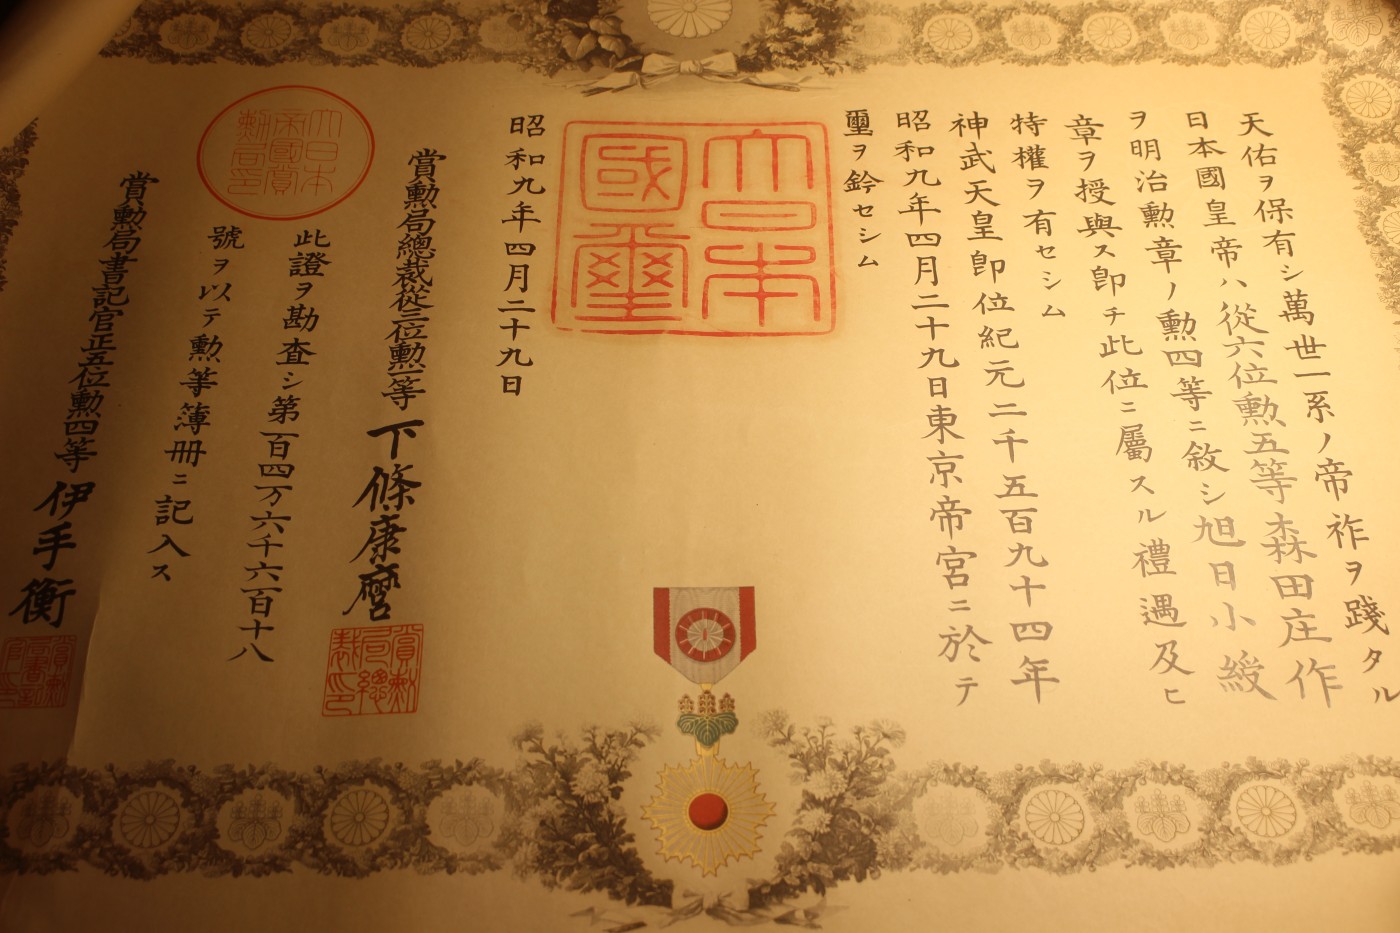 天佑ヲ保有シ萬世一系ノ帝祚ヲ踐タル
日本國皇帝ハ從六位勲五等森田庄作
ヲ明治勲章ノ勲四等ニ敘シ旭日小綬
章ヲ授與ス卽チ此位ニ屬スル禮遇及ヒ
特權ヲ有セシム
神武天皇卽位紀元二千五百九十四年
昭和九年四月二十九日東京帝宮ニ於テ
璽ヲ鈐セシム
大日本國璽
昭和九年四月二十九日
賞勲局總裁從三位勲一等下條康麿
賞勲局總裁印
此證ヲ勘査シ第一百四万六千六百十八
號ヲ以テ勲等簿冊ニ記入ス
大日本帝國賞勲局印
賞勲局書記官正五位勲四等伊手衡